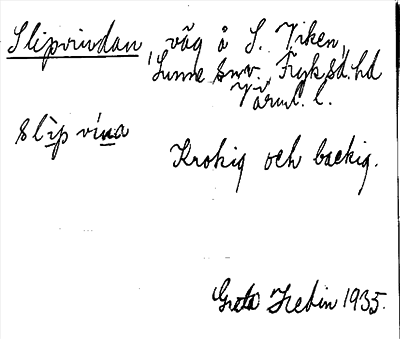 Slipvindan, väg å S. Viken,
Sunne snv., Fryksd. hd
Värml. l.
slìp vína
Krokig och backig.
Greta Hedin 1935.